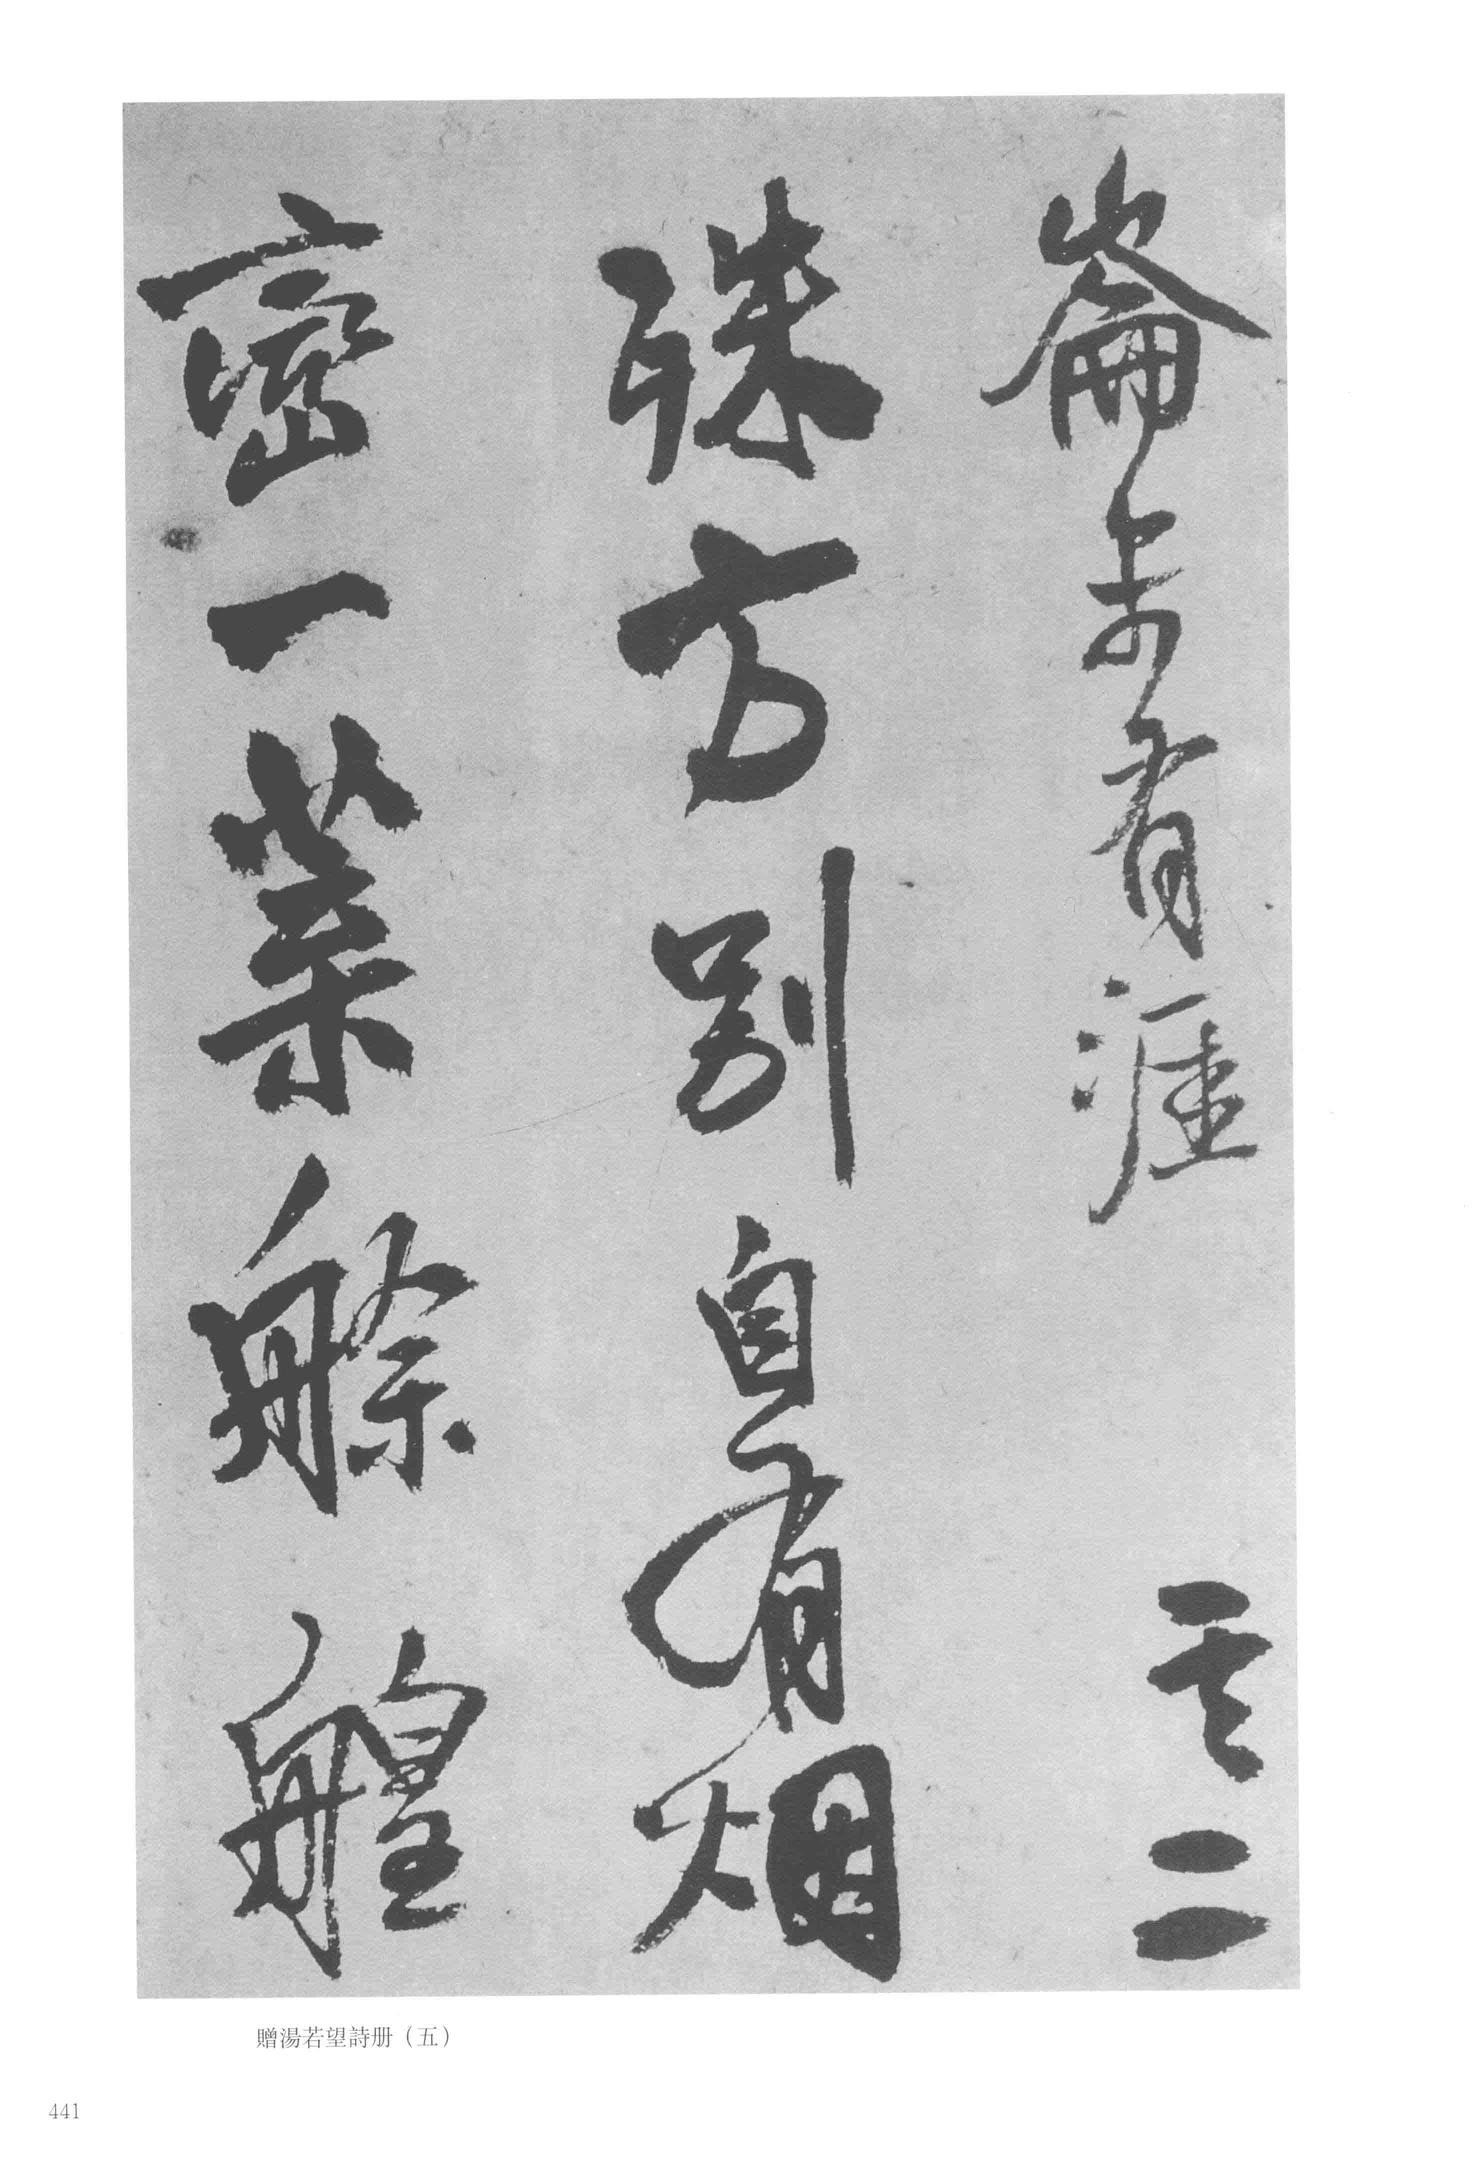 崙亦有涯 其二
殊方別自有烟
巒一葉艅艎
贈湯若望詩册（五）
441